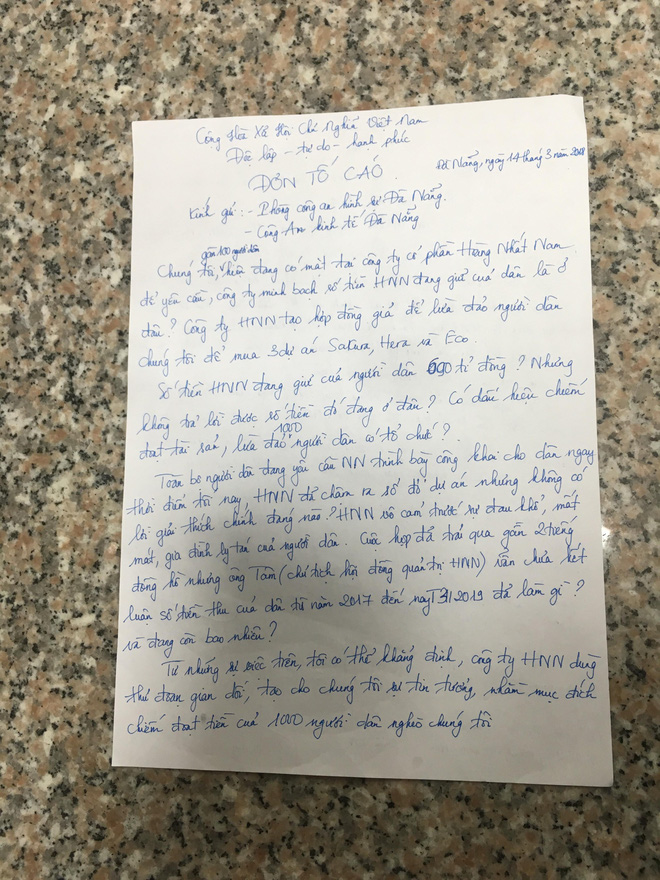 Cộng Hòa Xã Hội Chủ Nghĩa Việt Nam
Độc lập - tự do - hạnh phúc
Đà Nẵng, ngày 14 tháng 3 năm
ĐƠN TỐ CÁO
Kính gửi: - Phòng công an hình sự Đà Nẵng.
- Công An kinh tế Đà Nẵng
gần 100 người dân
Chúng tôi, hiện đang có mặt tại công ty cổ phần Hoàng Nhất Nam
để yêu cầu, công ty minh bạch số tiền HNN đang giữ của dân là ở
đâu? Công ty HNN tạo hợp đồng giả để lừa đảo người dân
chúng tôi để mua 3 dự án Sakura, Hera và Eco.
Số tiền HNN đang giữ của người dân 690 tỉ đồng? Nhưng
không trả lời được số tiền đó đang ở đâu? Có dấu hiệu chiếm
1000
đoạt tài sản, lừa đảo người dân có tổ chức?
Toàn bộ người dân đang yêu cầu NN trình bày công khai cho dân ngay
thời điểm tối nay. HNN đã chậm ra sổ đỏ dự án nhưng không có
lời giải thích chính đáng nào? HNN vô cảm trước sự đau khổ, mất
mát, gia đình ly tán của người dân. Cuộc họp đã trải qua gần 2 tiếng
đồng hồ nhưng ông Tâm (chủ tịch hội đồng quản trị HNN) vẫn chưa kết
luận số tiền thu của dân từ năm 2017 đến nay T3/2019 đã làm gì?
và đang còn bao nhiêu?
Từ những sự việc trên, tôi có thể khẳng định, công ty HNN dùng
thủ đoạn gian dối, tạo cho chúng tôi sự tin tưởng, nhằm mục đích
chiếm đoạt tiền của 1000 người dân nghèo chúng tôi